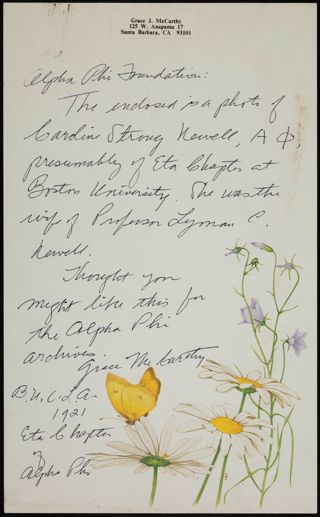 Grace J. McCarthy
125 W. Anapamu 17
Santa Barbara, CA 93101
Alpha Phi Foundation:
The enclosed is a photo of
Caroline Strong Newell, A Φ,
presumably of Eta Chapter at
Boston University. She was the
wife of Professor Lyman C.
Newell.
Thought you
might like this for
the Alpha Phi
archives.
Grace McCarthy
B.U., C.L.A.
1921
Eta Chapter
of
Alpha Phi